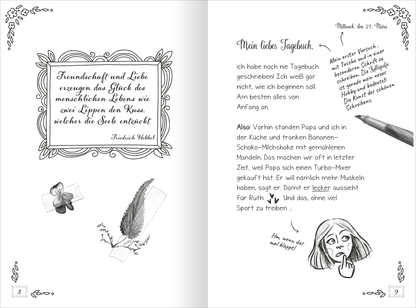 Freundschaft und Liebe
erzeugen das Glück des
menschlichen Lebens wie
zwei Lippen den Kuss,
welcher die Seele entzückt.
Friedrich Hebbel
8
Mittwoch, der 29. März
Mein liebes Tagebuch,
ich habe noch nie Tagebuch
geschrieben! Ich weiß gar
nicht, wie ich beginnen soll.
Am besten alles von
Anfang an.
Mein erster Versuch,
mit Tusche und in einer
besonderen Schrift zu
schreiben. Die Kalligrafie
ist gerade mein neues
Hobby und bedeutet:
Die Kunst des schönen
Schreibens.
Also: Vorhin standen Papa und ich in
der Küche und tranken Bananen-
Schoko-Milchshake mit gemahlenen
Mandeln. Das machen wir oft in letzter
Zeit, weil Papa sich einen Turbo-Mixer
gekauft hat. Er will nämlich mehr Muskeln
haben, sagt er. Damit er lecker aussieht
für Ruth. Und das, ohne viel
Sport zu treiben ...
Hm, wenn das
mal klappt!
9